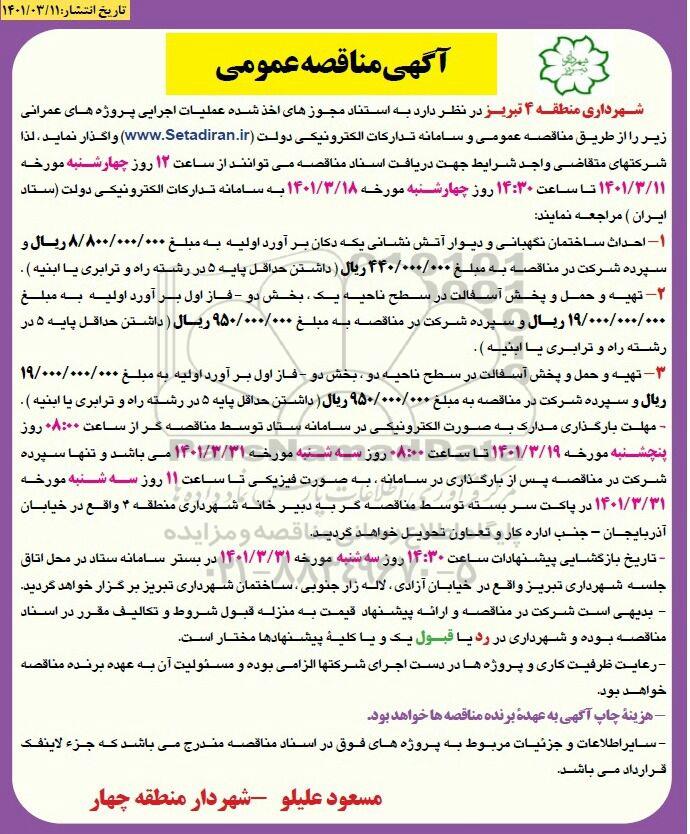 تاریخ انتشار: ۱۴۰۱/۰۳/۱۱
شهرداری تبریز
آگهی مناقصه عمومی
شهرداری منطقه ۴ تبریز در نظر دارد به استناد مجوز های اخذ شده عملیات اجرایی پروژه های عمرانی
زیر را از طریق مناقصه عمومی و سامانه تدارکات الکترونیکی دولت (www.Setadiran.ir) واگذار نماید، لذا
شرکتهای متقاضی واجد شرایط جهت دریافت اسناد مناقصه می توانند از ساعت ۱۲ روز چهارشنبه مورخه
۱۴۰۱/۳/۱۱ تا ساعت ۱۴:۳۰ روز چهارشنبه مورخه ۱۴۰۱/۳/۱۸ به سامانه تدارکات الکترونیکی دولت (ستاد
ایران) مراجعه نمایند:
۱- احداث ساختمان نگهبانی و دیوار آتش نشانی یکه دکان بر آورد اولیه به مبلغ ۸/۸۰۰/۰۰۰/۰۰۰ ریال و
سپرده شرکت در مناقصه به مبلغ ۴۴۰/۰۰۰/۰۰۰ ریال (داشتن حداقل پایه ۵ در رشته راه و ترابری یا ابنیه).
۲- تهیه و حمل و پخش آسفالت در سطح ناحیه یک، بخش دو - فاز اول بر آورد اولیه به مبلغ
۱۹/۰۰۰/۰۰۰/۰۰۰ ریال و سپرده شرکت در مناقصه به مبلغ ۹۵۰/۰۰۰/۰۰۰ ریال (داشتن حداقل پایه ۵ در
رشته راه و ترابری یا ابنیه).
۳- تهیه و حمل و پخش آسفالت در سطح ناحیه دو، بخش دو - فاز اول بر آورد اولیه به مبلغ ۱۹/۰۰۰/۰۰۰/۰۰۰
ریال و سپرده شرکت در مناقصه به مبلغ ۹۵۰/۰۰۰/۰۰۰ ریال (داشتن حداقل پایه ۵ در رشته راه و ترابری یا ابنیه).
- مهلت بارگذاری مدارک به صورت الکترونیکی در سامانه ستاد توسط مناقصه گر از ساعت ۰۸:۰۰ روز
پنجشنبه مورخه ۱۴۰۱/۳/۱۹ تا ساعت ۰۸:۰۰ روز سه شنبه مورخه ۱۴۰۱/۳/۳۱ می باشد و تنها سپرده
شرکت در مناقصه پس از بارگذاری در سامانه، به صورت فیزیکی تا ساعت ۱۱ روز سه شنبه مورخه
۱۴۰۱/۳/۳۱ در پاکت سر بسته توسط مناقصه گر به دبیر خانه شهرداری منطقه ۴ واقع در خیابان
آذربایجان – جنب اداره کار و تعاون تحویل خواهد گردید.
- تاریخ بازگشایی پیشنهادات ساعت ۱۴:۳۰ روز سه شنبه مورخه ۱۴۰۱/۳/۳۱ در بستر سامانه ستاد در محل اتاق
جلسه شهرداری تبریز واقع در خیابان آزادی، لاله زار جنوبی، ساختمان شهرداری تبریز بر گزار خواهد گردید.
- بدیهی است شرکت در مناقصه و ارائه پیشنهاد قیمت به منزله قبول شروط و تکالیف مقرر در اسناد
مناقصه بوده و شهرداری در رد یا قبول یک و یا کلیهٔ پیشنهادها مختار است.
- رعایت ظرفیت کاری و پروژه ها در دست اجرای شرکتها الزامی بوده و مسئولیت آن به عهده برنده مناقصه
خواهد بود.
- هزینهٔ چاپ آگهی به عهدهٔ برنده مناقصه ها خواهد بود.
- سایر اطلاعات و جزئیات مربوط به پروژه های فوق در اسناد مناقصه مندرج می باشد که جزء لاینفک
قرارداد می باشد.
مسعود علیلو - شهردار منطقه چهار
ParsNamadData